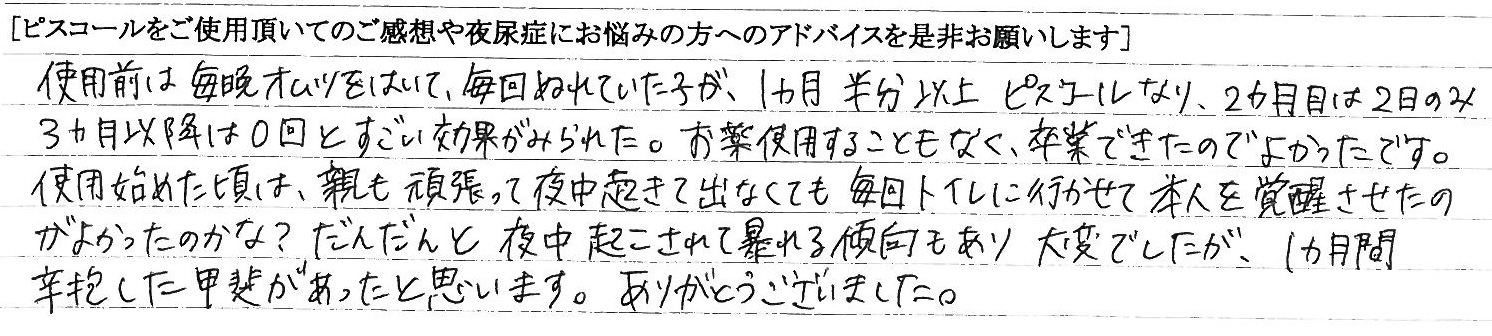 [ピスコールをご使用頂いてのご感想や夜尿症にお悩みの方へのアドバイスを是非お願いします]
使用前は毎晩オムツをはいて、毎回ぬれていた子が、1カ月半分以上ピスコールなり、2カ月目は2日のみ
3カ月以降は0回とすごい効果がみられた。お薬使用することもなく、卒業できたのでよかったです。
使用始めた頃は、親も頑張って夜中起きて出なくても毎回トイレに行かせて本人を覚醒させたの
がよかったのかな?だんだんと夜中起こされて暴れる傾向もあり大変でしたが、1カ月間
辛抱した甲斐があったと思います。ありがとうございました。